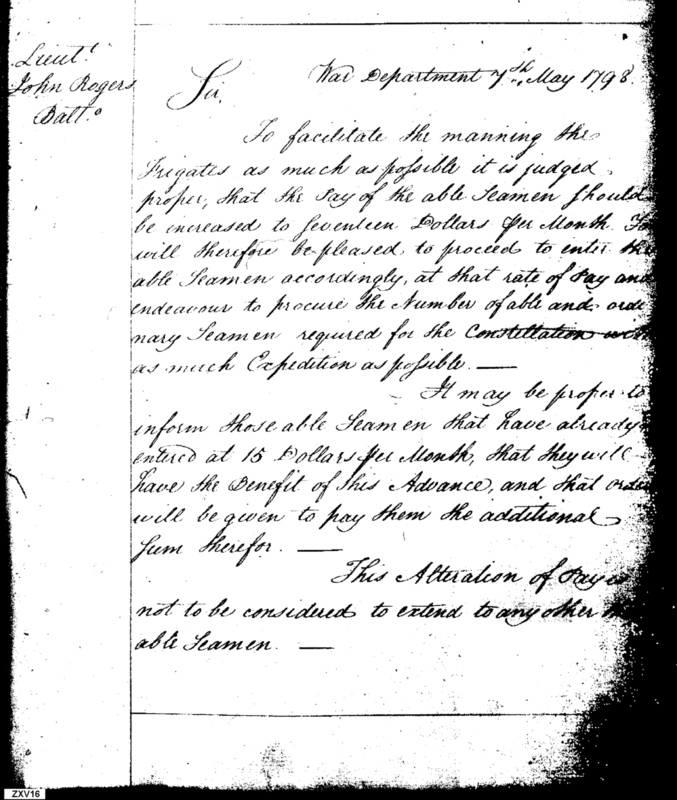 Lieut.t
John Rogers
Balt.o
War Department 7th May 1798.
Sir,
To facilitate the manning the
Frigates as much as possible it is judged
proper, that the Pay of the able Seamen should
be increased to Seventeen Dollars per Month.
will therefore be pleased to proceed to enter the
able Seamen accordingly, at that rate of Pay and
endeavour to procure the Number of able and ordi
nary Seamen required for the Constellation with
as much Expedition as possible. —
It may be proper to
inform those able Seamen that have already
entered at 15 Dollars per Month, that they will
have the Benefit of this Advance, and that
will be given to pay them the additional
Sum therefor. —
This Alteration of Pay is
not to be considered to extend to any other
able Seamen. —
ZXV16